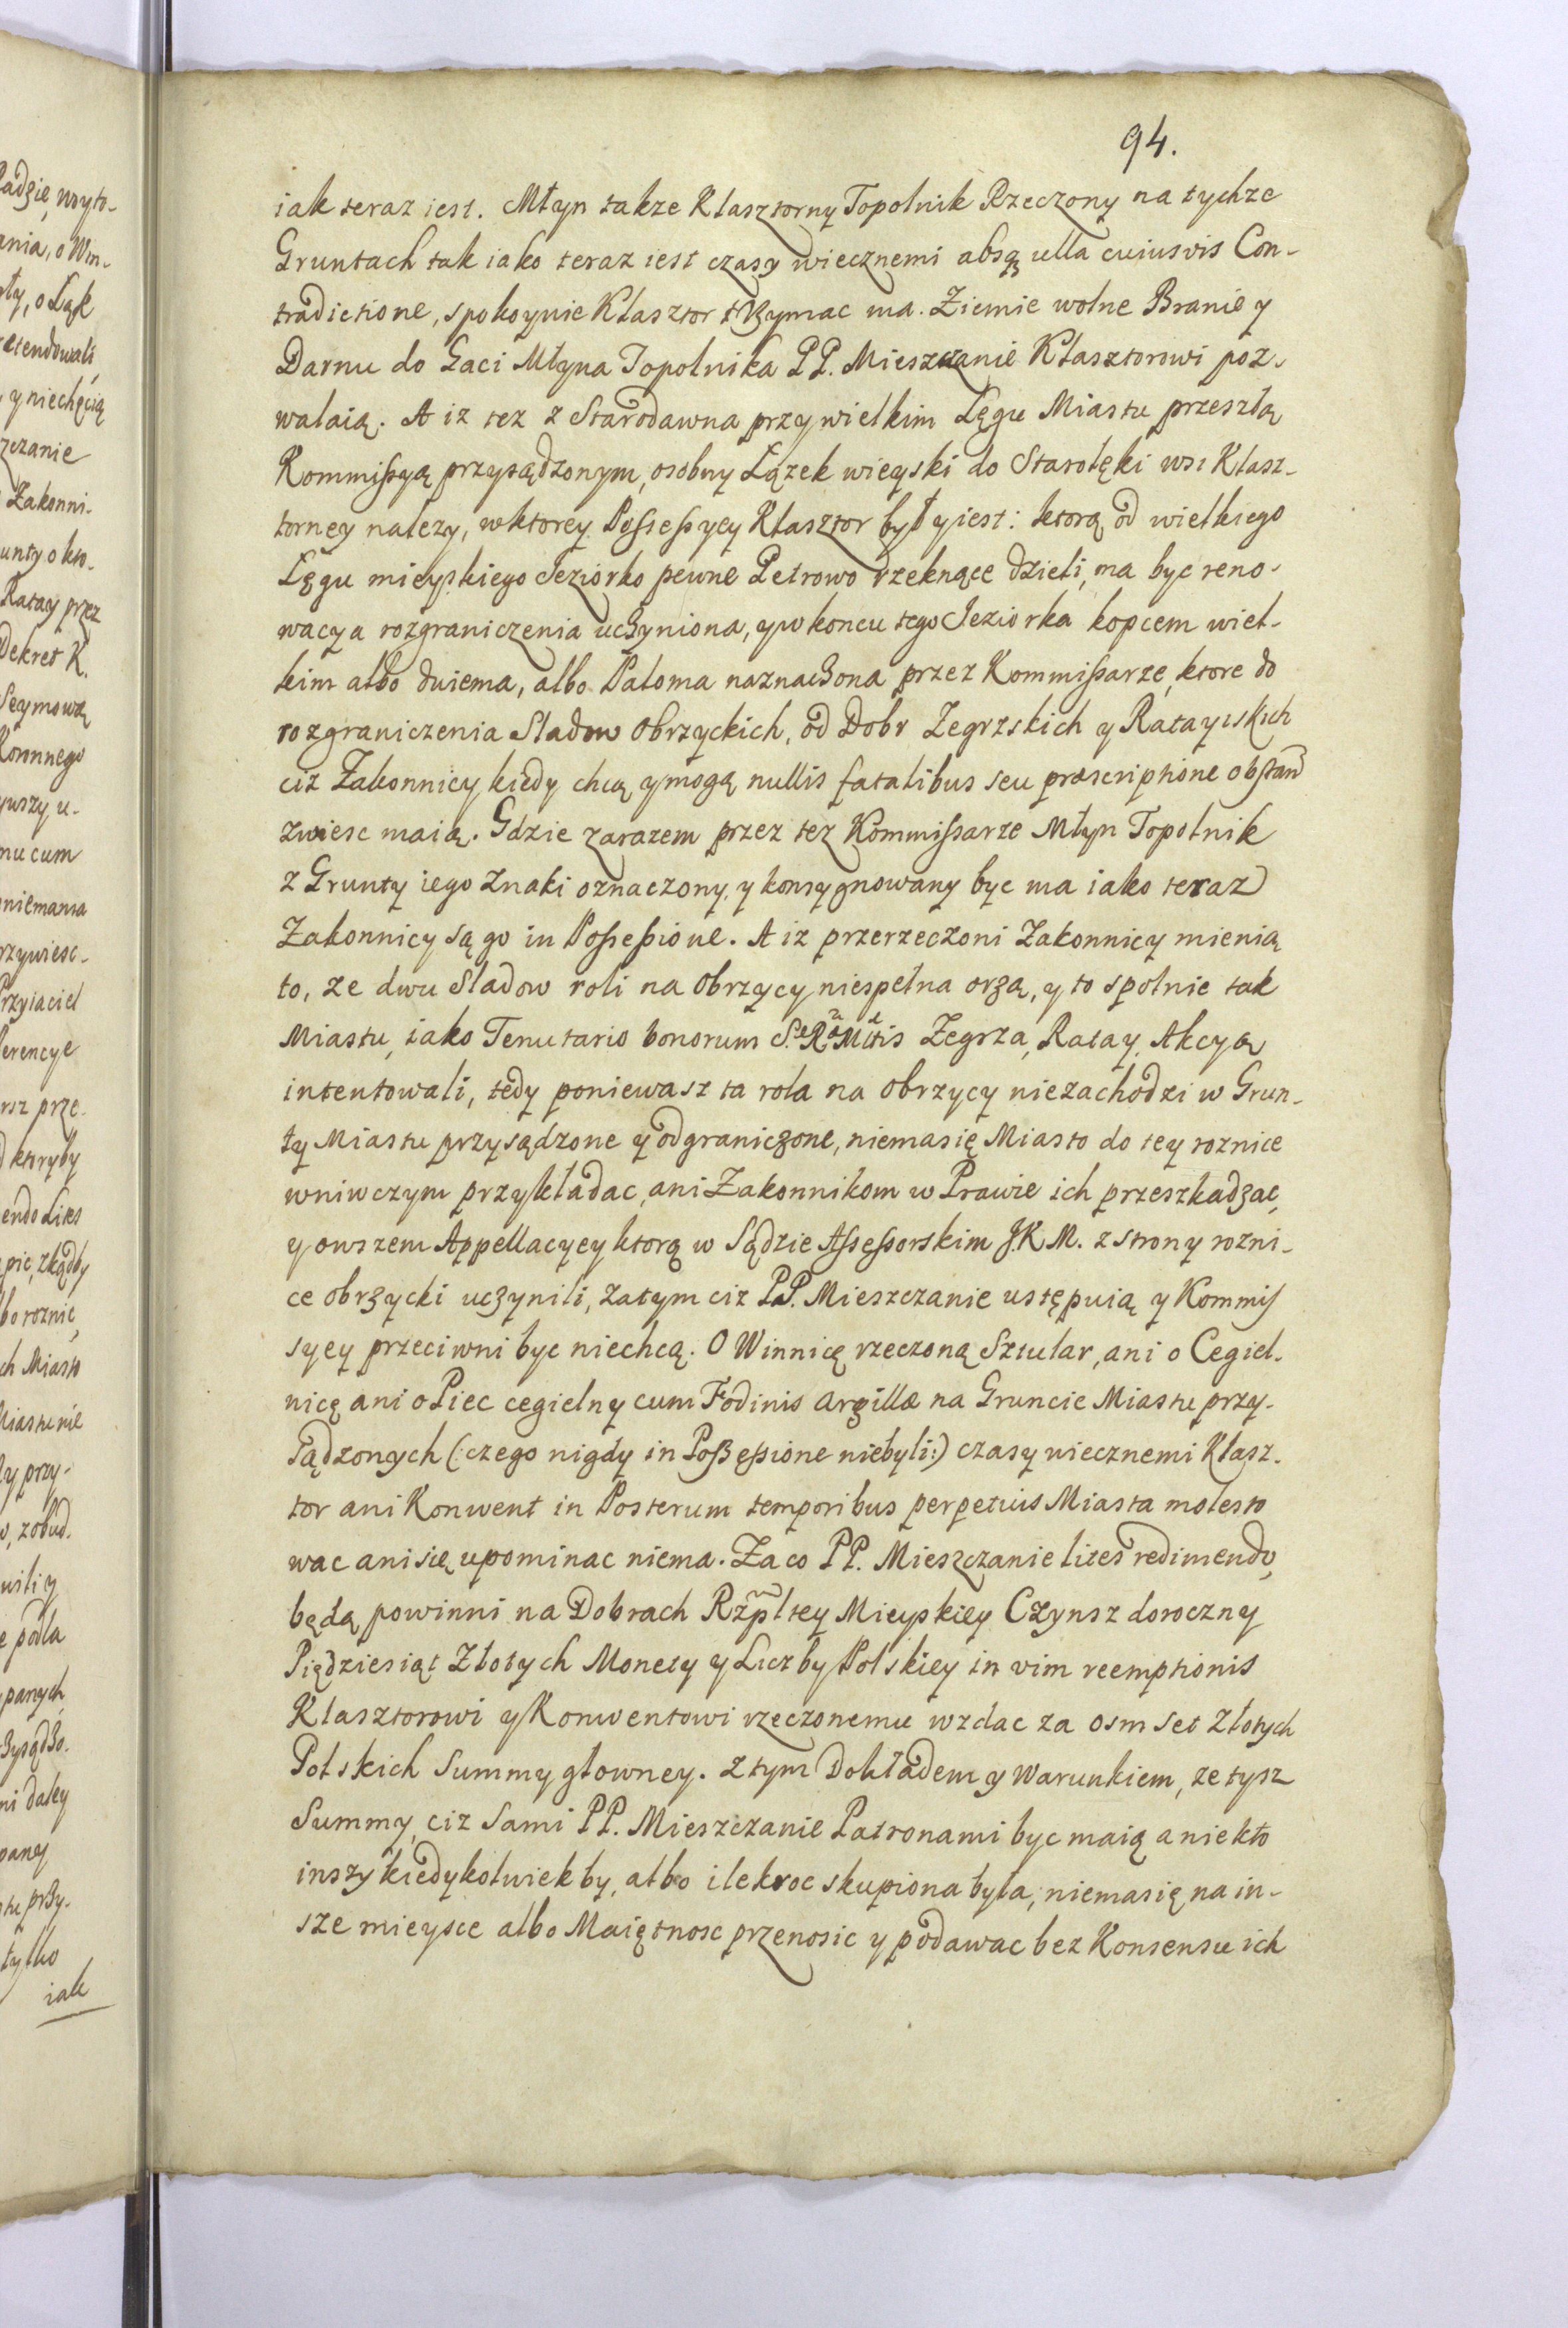 94.
iak teraz iest. Młyn takze Klasztorny Topolnik Rzeczony na tychze
Gruntach tak iako teraz iest czasy wiecznemi absq ulla cuiusvis Con-
tradictione, spokoynie Klasztor trzymac ma. Ziemie wolne Branie y
Darnu do Gaci Młyna Topolnika PP. Mieszczanie Klasztorowi poz-
walaią. A iz tez z Starodawna przy wielkim Lęgu Miastu przeszłą
Kommissyą przysądzonym, osobny Łązek wieyski do Starołęki wsi Klasz-
torney nalezy, w ktorey Possessycy Klasztor był y iest: ktorą od wielkiego
Lęgu mieyskiego Jeziorko pewne Petrowo rzeknące dzieli, ma byc reno-
wacya rozgraniczenia uczyniona, y w koncu tego Jeziorka kopcem wiel-
kim albo dwiema, albo Paloma naznaczona przez Kommissarze, ktore do
rozgraniczenia Sladow Obrzyckich, od Dobr Zegrzskich y Ratayiskich
ciz Zakonnicy kiedy chcą y mogą nullis fatalibus seu præscriptione obstan
zwiesc maią. Gdzie zarazem przez tez Kommissarze Młyn Topolnik
z Grunty iego Znaki oznaczony y konsygnowany byc ma iako teraz
Zakonnicy są go in Possessione. A iz przerzeczoni Zakonnicy mienią
to, ze dwu Sladow roli na Obrzycy niespełna orzą, y to spolnie tak
Miastu, iako Tenutario bonorum Zegrza, Ratay, Akcyą
intentowali, tedy poniewasz ta rola na Obrzycy niezachodzi w Grun-
ty Miastu przysądzone y odgraniczone, niemasię Miasto do tey roznice
wniwczym przykładac, ani Zakonnikom w Prawie ich przeszkadzac,
y owszem Appellacyey ktorą w Sądzie Assessorskim J.K.M. z strony rozni-
ce obrzycki uczynili, zatym ciz PP. Mieszczanie ustępuią y Kommis
syey przeciwni byc niechcą. O Winnicę rzeczoną Sztular, ani o Cegiel-
nicę ani o Piec cegielny cum Fodinis argillæ na Gruncie Miastu przy-
sądzonych (: czego nigdy in Possessione niebyli :) czasy wiecznemi Klasz-
tor ani Konwent in Posterum temporibus perpetuis Miasta molesto
wac ani się upominac niema. Za co PP. Mieszczanie lites redimendo,
będą powinni na Dobrach Rzpltey Mieyskiey Czynsz doroczny
Piędziesiąt Złotych Monety y Liczby Polskiey in vim reemptionis
Klasztorowi y Konwentowi rzeczonemu wzdac za osm set Złotych
Polskich Summy głowney. Z tym Dokładem y Warunkiem, ze tysz
Summy, ciz Sami PP. Mieszczanie Patronami byc maią a nie kto
inszy kiedykolwiek by, albo ilekroc skupiona była, niemasię na in-
sze mieysce albo Maiętnosc przenosic y podawac bez Konsensu ich